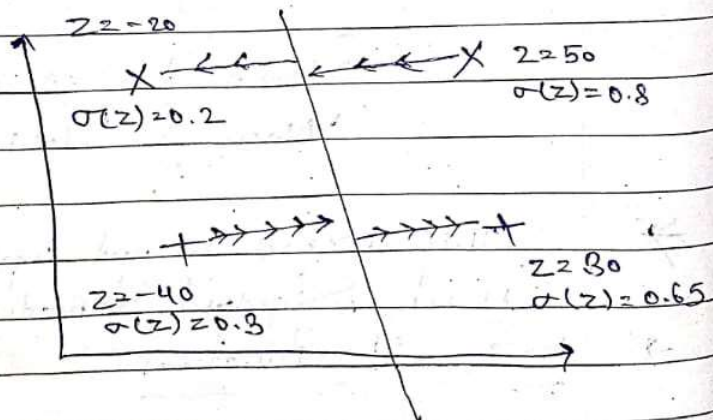 z=-20
z=50
σ(z)=0.8
σ(z)=0.2
z=30
σ(z)=0.65
z=-40
σ(z)=0.3